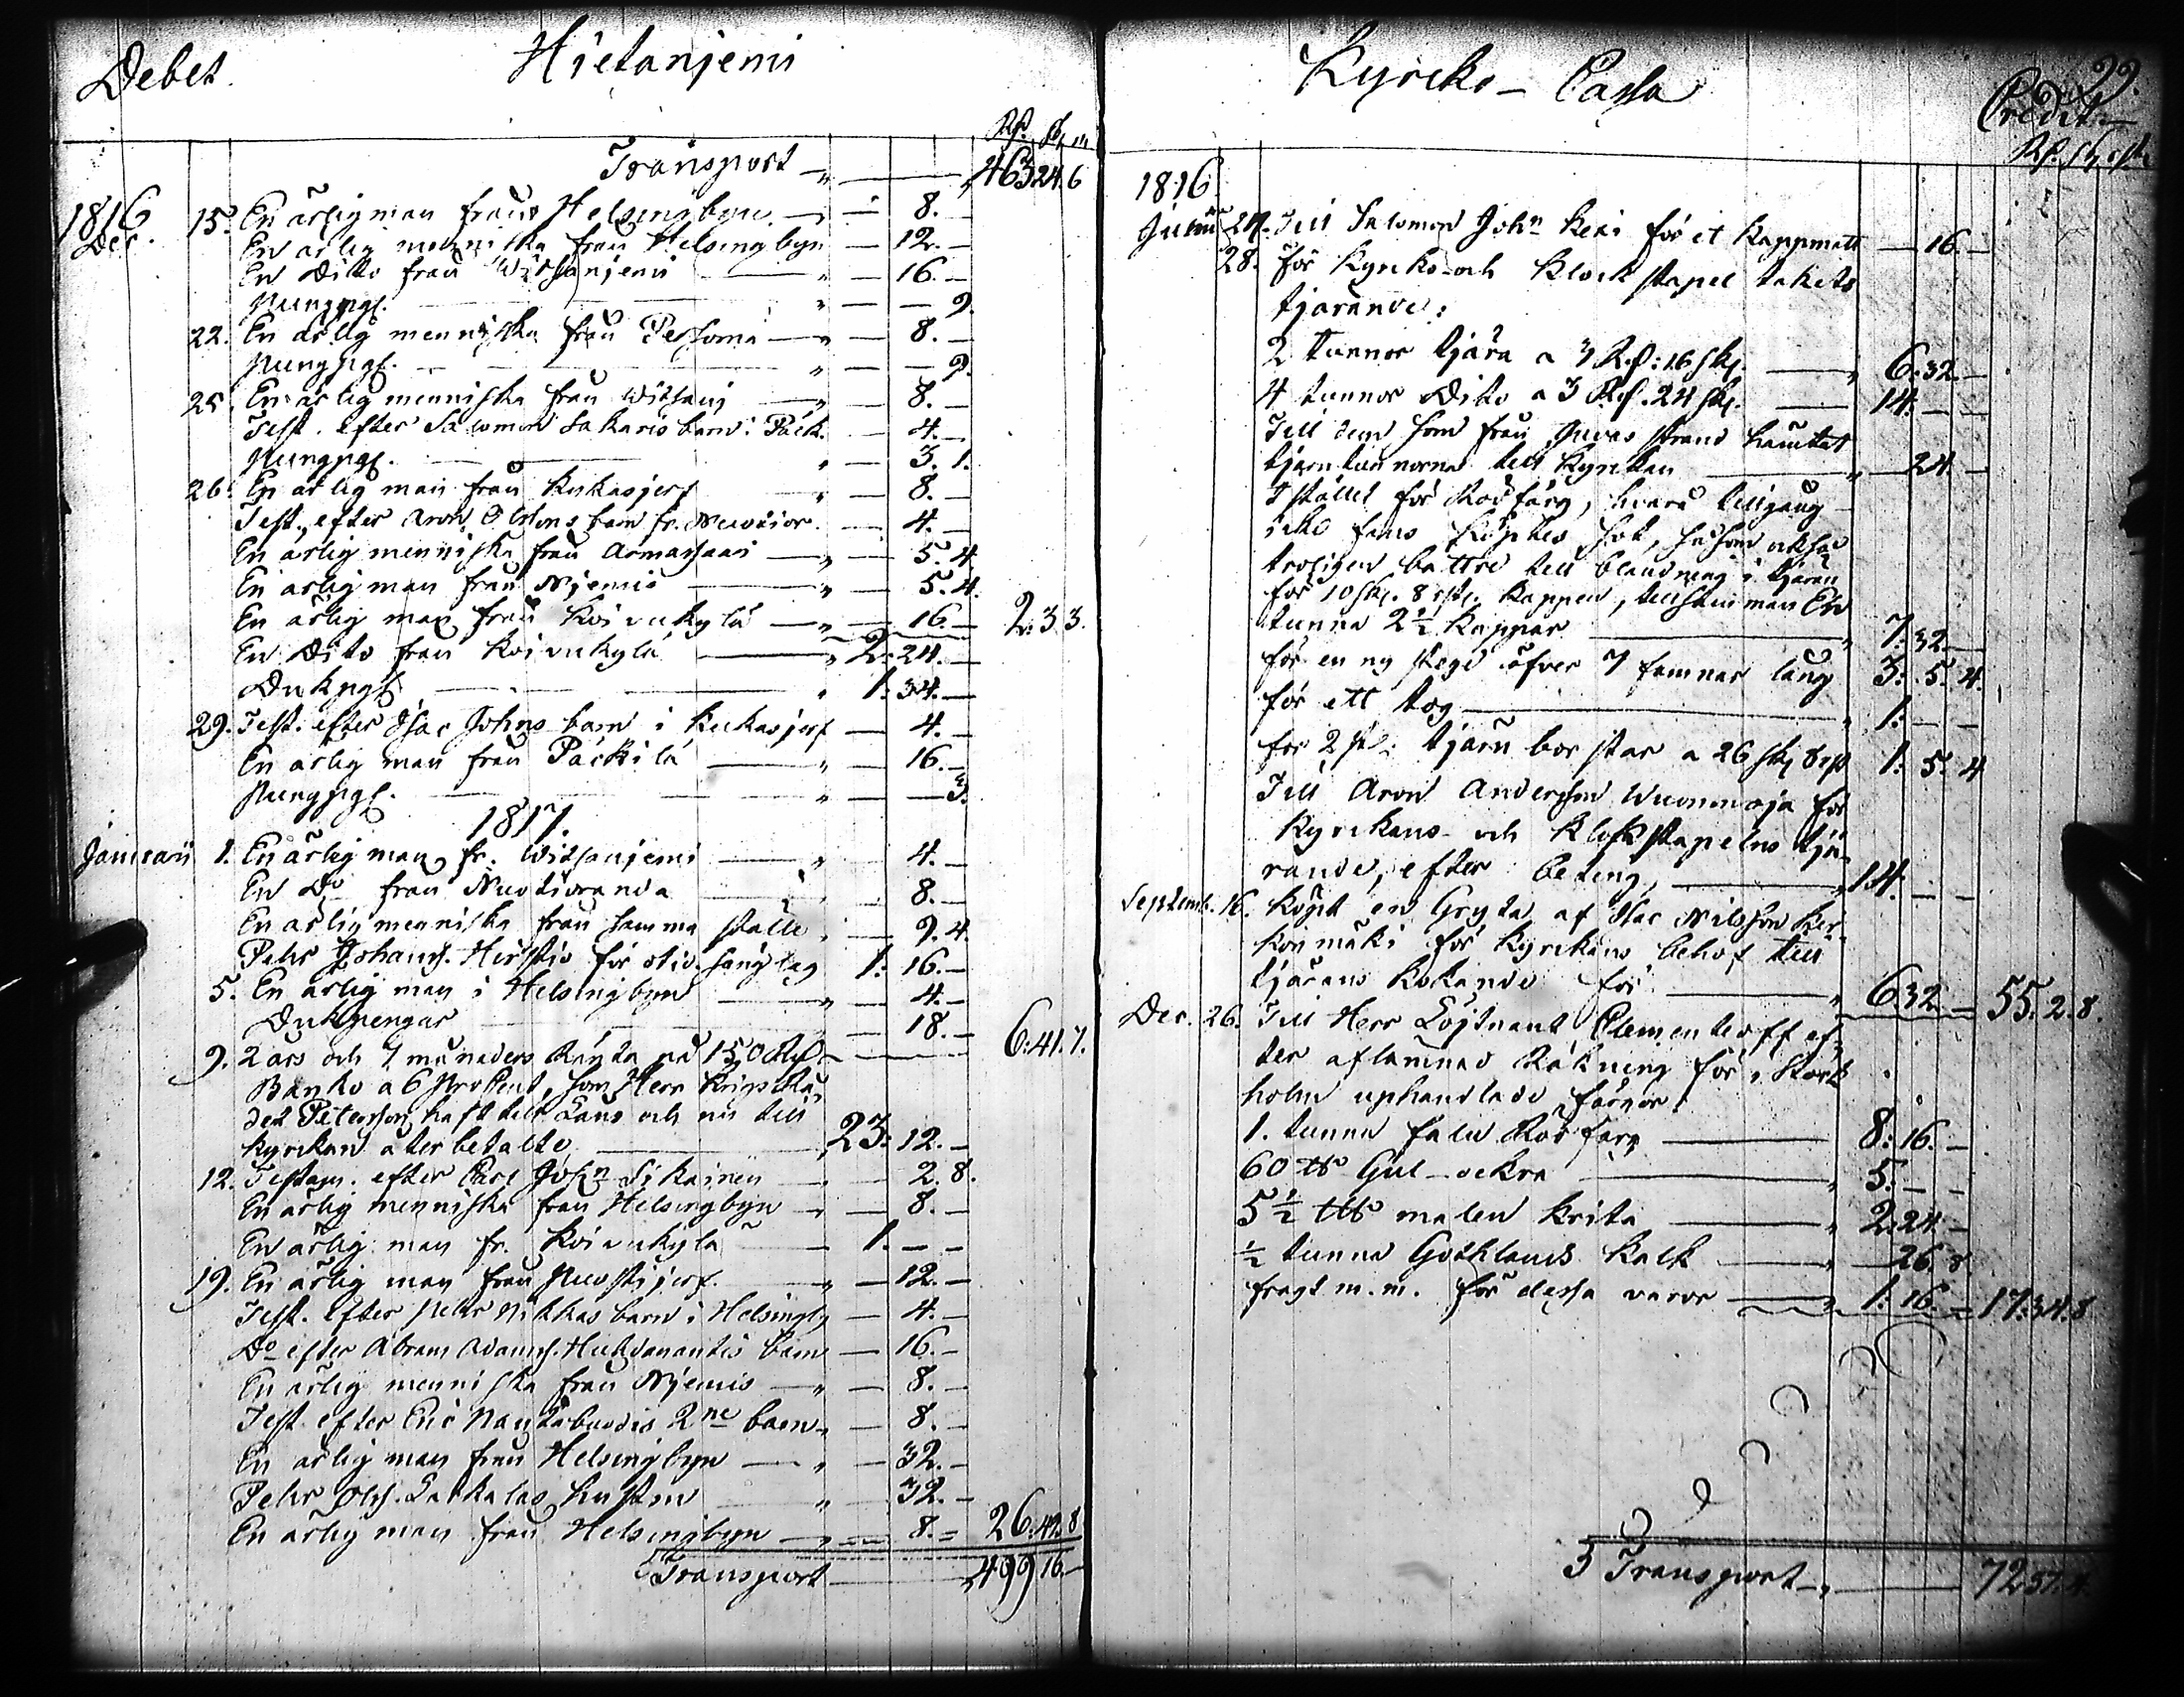 Debet. Hietaniemi
Rd. sk. r.
Transport 463 24. 6
1816
Dec. 15. En ärlig man från Helsingbyn 8.
En ärlig menniska från Helsingbyn 12.
En Ditto från Witsaniemi 16.
Pungpgr. 9.
22. En ärlig menniska från 8.
Pungpgr. 9.
25. En ärlig menniska från Witsani 8.
Test. efter Salomon Sakaris barn i Päck. 4.
Pungpgr. 3. 1.
26. En ärlig man från Kukasjerf 8.
Test. efter Aron barn fr. 4.
En ärlig menniska från Armassaari 5. 4.
En ärlig man från Niemis 5. 4.
En ärlig man från Koivukylä 16. 2. 3 3.
En Dito från Koivukylä 2: 24.
Dukpgr 1: 34.
29. Test. efter Isac Johns barn i Kukasjerf 4.
En ärlig man från Päckilä 16.
Pungpgr. 3.
1817.
Januarii 1. En ärlig man fr. Witsaniemi 4.
En Do från 8.
En ärlig menniska från samma ställe 9. 4.
Pehr Johans. för 1: 16.
5. En ärlig man i Helsingbyn 4.
Dukpengar 18. 6: 41. 7.
9. 2 års och 7 månaders Ränta på 150 Rd
Banko a 6 proCent, som Herr
det Petersson haft till Låns och nu till
kyrkan återbetalte 23: 12.
12. Testam. efter Carl John Sikainen 2. 8.
En ärlig menniska från Helsingbyn 8.
En ärlig man fr. Koivukylä 1.
19. En ärlig man från 12.
Test. efter Pehr Nikkas barn i Helsingby 4.
Do efter Abram Adams. barn 16.
En ärlig menniska från Niemis 8.
Test. efter Eric 2ne barn 8.
En ärlig man från Helsingbyn 32.
Pehr Ols. hustru 32.
En ärlig man från Helsingbyn 8. 26. 42. 8
Transport 499 16.
Kyrcko - Cassa 99.
Credit.
Rd. sk. rst.
1816
Junii 24. Till Salomon John Keri för et kappmått 16.
28. För Kyrko- och Klockstapel takets
tjärande:
2 tunnor tjära a 3 Rd: 16 sk. 6. 32.
4 tunnor Dito a 3 Rd. 24 sk. 14.
Till dem som från strand hämtat
tjärtunnorna till Kyrckan 24.
I stället för Rödfärg, hvara tillgång
icke fans köptes sot, såsom också
troligen bättre till blandning i tjäran
för 10 sk. 8 rst. kappen, tillsamman En
tunna 2½ kappar 7. 32.
för en ny stege öfver 7 famnar lång 3. 5. 4.
för ett tog 1.
för 2 st. tjäru borstar a 26 sk 8 rst 1. 5. 4
Till Aron Andersson för
Kyrckans- och Klockstapelns tjä-
rande, efter beting, 14.
Septemb. 16. köpt en Gryta af Isac Nilsson Ker-
för Kyrckans behof till
tjärans kokande för 6 32 55. 2. 8.
Dec. 26. Till Herr Löjtnant Clementeoff ef-
ter aflämnad Räkning för i Stock
holm uphandlade färgor
1. tunna falu Rödfärg 8: 16.
60 ℔ Gul-ockra 5.
5½ ℔ malen krita 2. 24.
½ tunna Gothlands kalk 26. 8
fragt m. m. för dessa varor 1. 16. 17. 34. 8
Transport